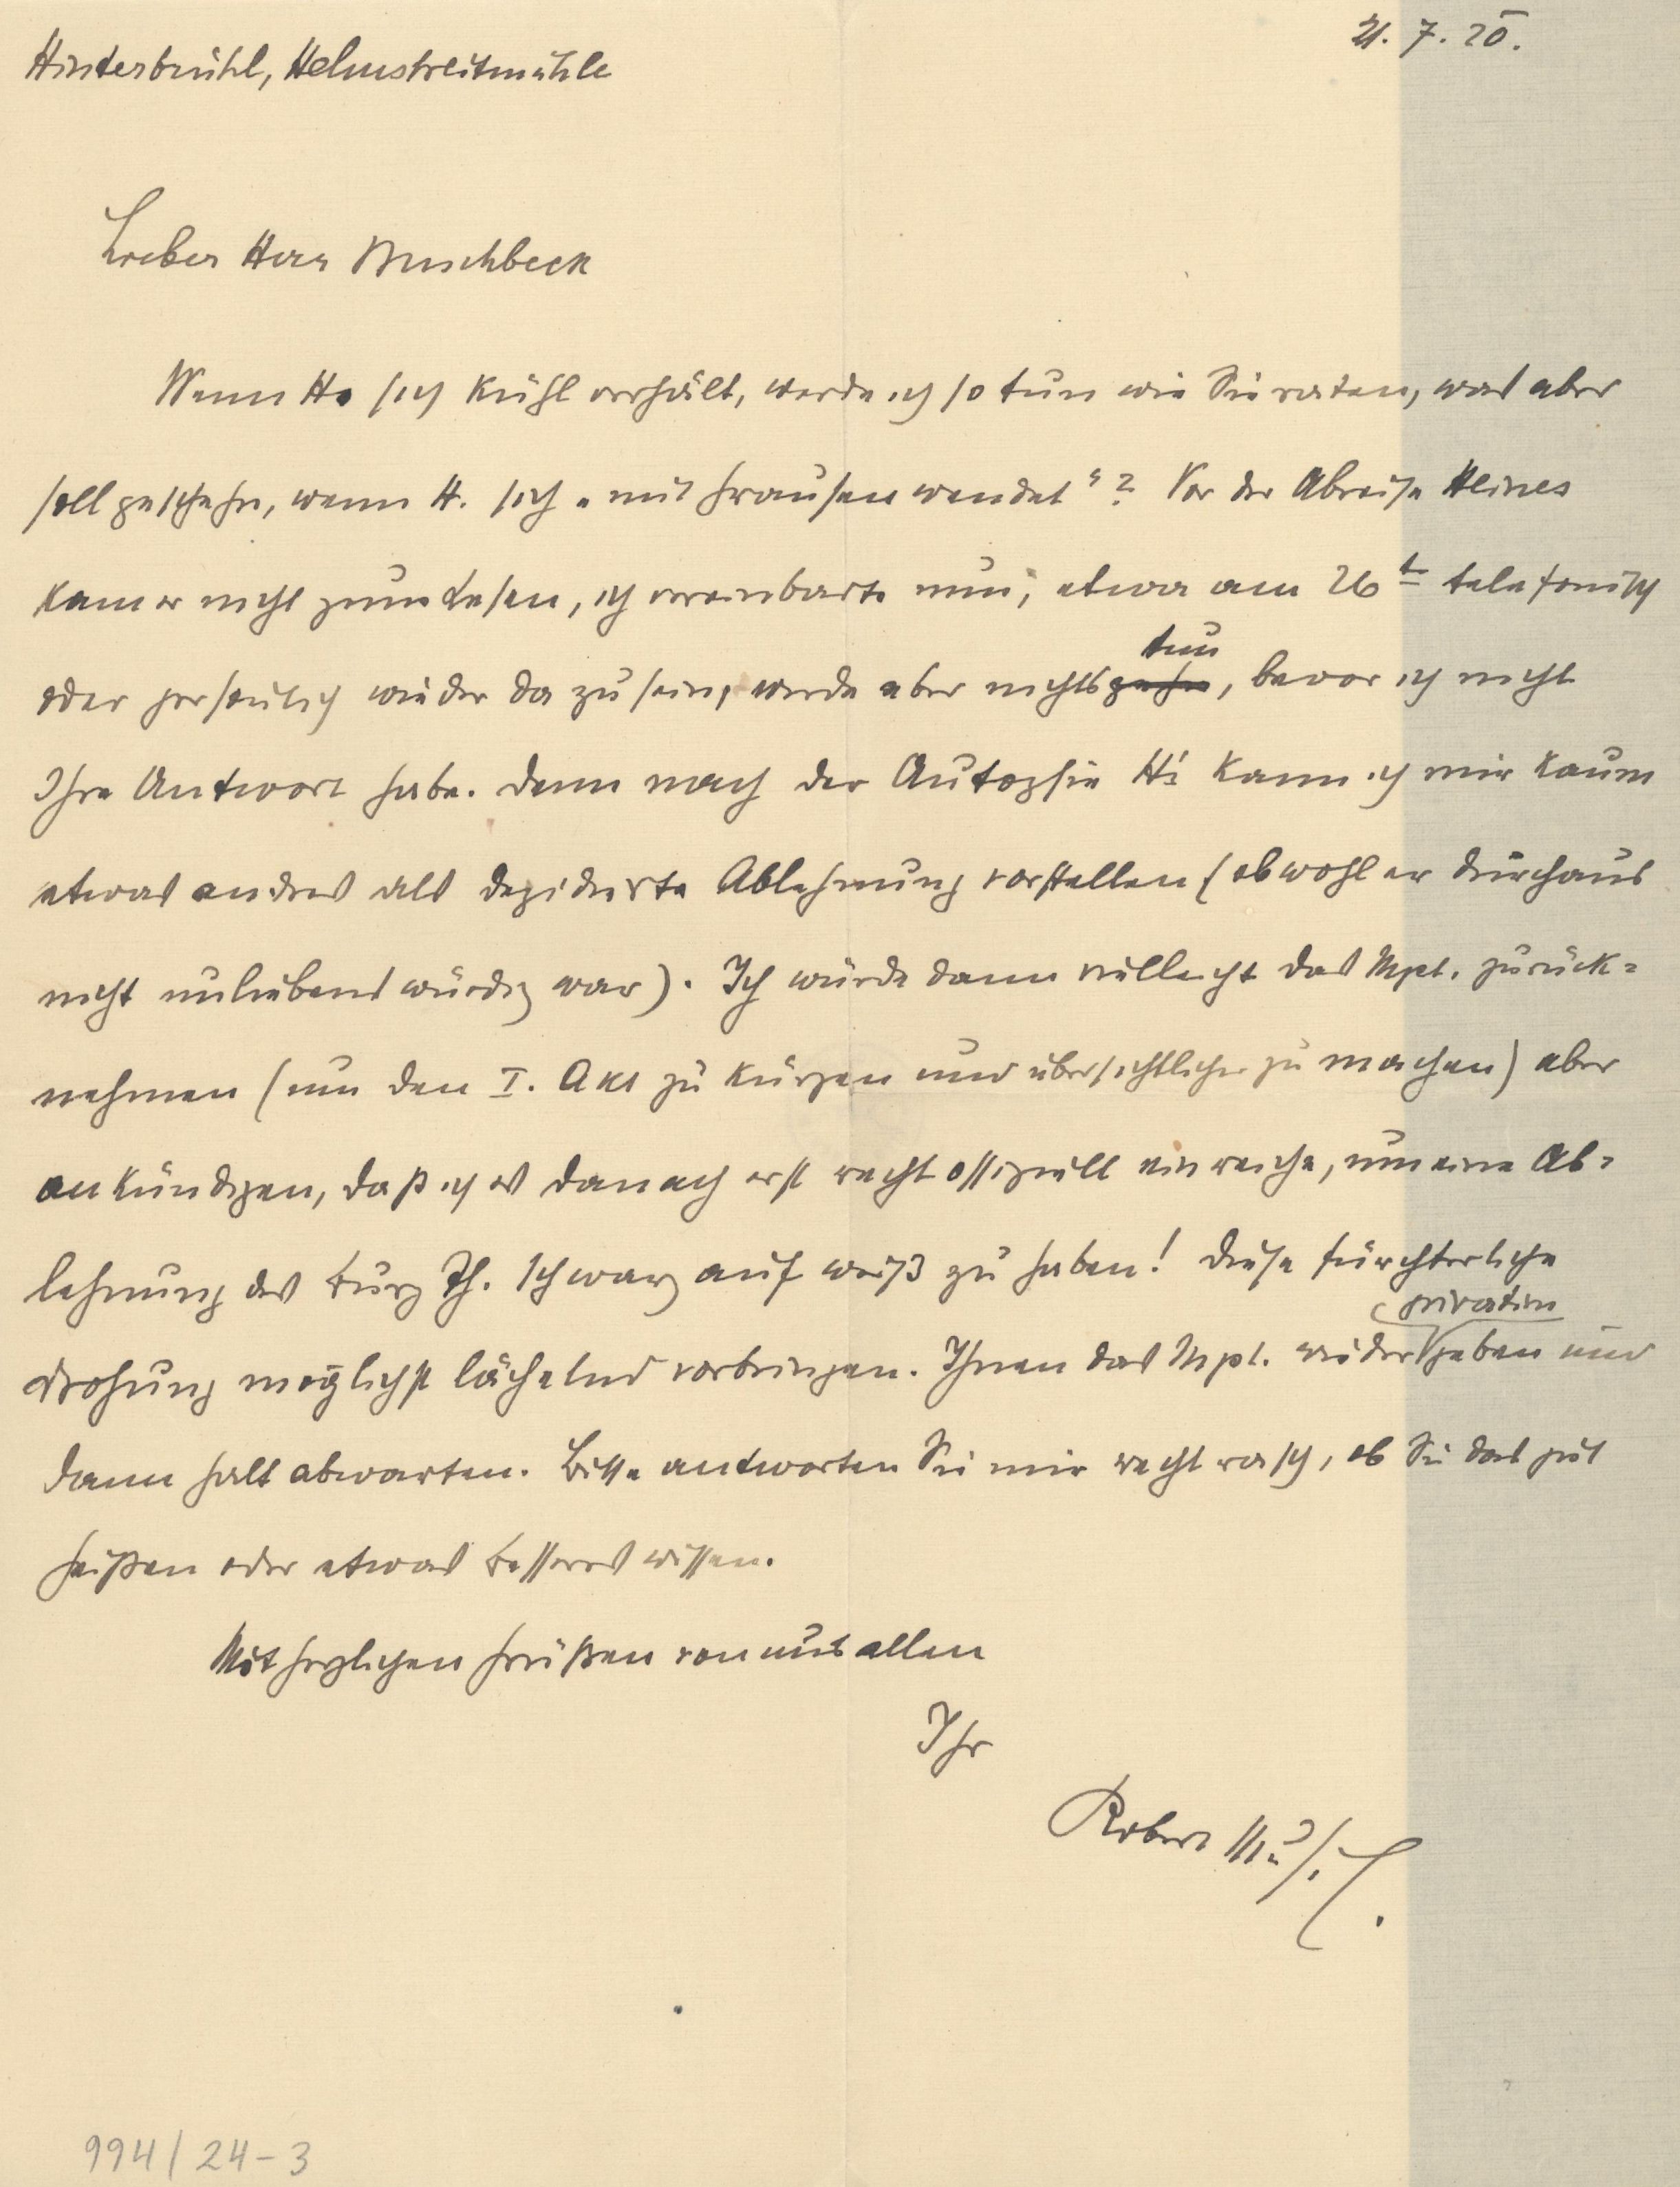 21. 7. 20.
Hinterbrühl, Helmstreitmühle
Lieber Herr Buschbeck
Wenn H. sich kühl verhält, werde ich so tun wie Sie raten, was aber
soll geschehn, wenn H. sich „mit Grausen wendet“? Vor der Abreise Heines
kam er nicht zum Lesen, ich vereinbarte nun, etwa am 26t telefonisch
oder persönlich wieder da zu sein, werde aber nichts tun, bevor ich nicht
Ihre Antwort habe. Denn nach der Autopsie H's kann ich mir kaum
etwas andres als dezidierte Ablehnung vorstellen (obwohl er durchaus
nicht unliebenswürdig war). Ich würde dann vielleicht das Mpt. zurück=
nehmen (um den I. Akt zu kürzen und übersichtlicher zu machen) aber
ankündigen, daß ich es danach erst recht offiziell einreiche, um eine Ab=
lehnung des Burg Th. schwarz auf weiß zu haben! Diese fürchterliche
Drohung möglichst lächelnd vorbringen. Ihnen das Mpt. wieder privatim geben und
dann halt abwarten. Bitte antworten Sie mir recht rasch, ob Sie das gut
heißen oder etwas Besseres wissen.
Mit herzlichen Grüßen von uns allen
Ihr
Robert Musil.
994/24-3